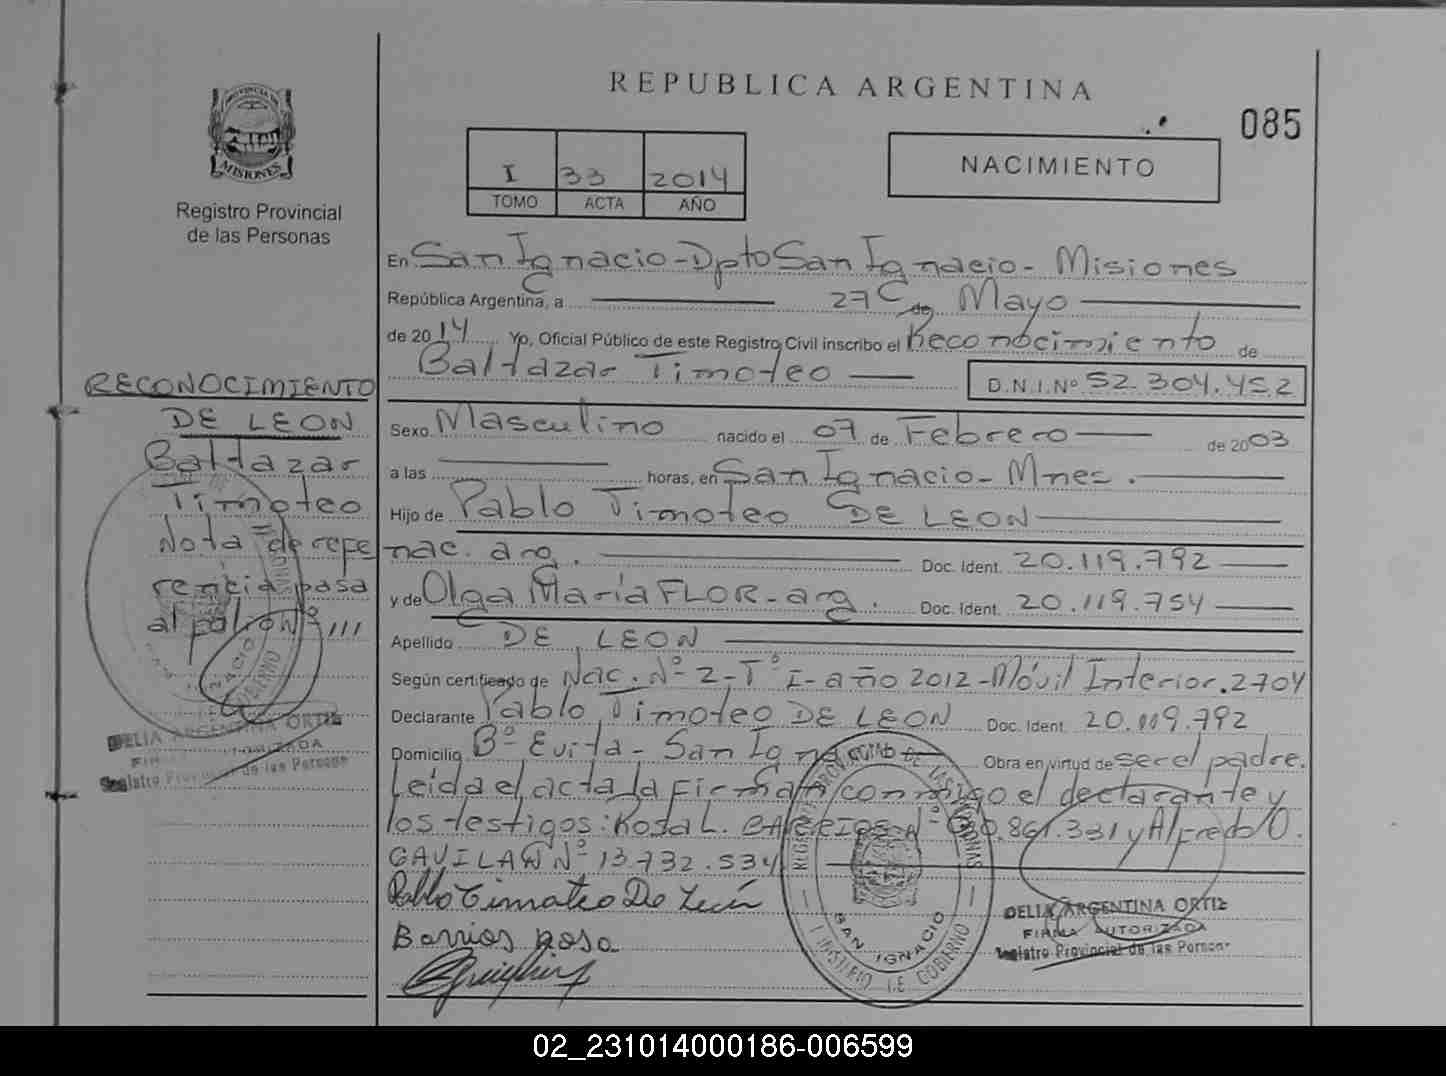 REPUBLICA ARGENTINA
085
NACIMIENTO
I 33 2014
TOMO ACTA AÑO
PROVINCIA DE
MISIONES
Registro Provincial
de las Personas
En San Ignacio - Dpto San Ignacio - Misiones
República Argentina, a 27 de Mayo
de 2014 Yo, Oficial Público de este Registro Civil inscribo el Reconocimiento de
Baltazar Timoteo D.N.I.Nº 52.304.452
Sexo Masculino nacido el 07 de Febrero de 2003
a las horas, en San Ignacio - Mnes.
Hijo de Pablo Timoteo DE LEON
nac. arg. Doc. Ident. 20.119.792
y de Olga María FLOR - arg. Doc. Ident. 20.119.754
Apellido DE LEON
Según certificado de Nac. Nº 2 - Tº I - año 2012 - Móvil Interior. 2704
Declarante Pablo Timoteo DE LEON Doc. Ident. 20.119.792
Domicilio Bº Evita - San Ignacio Obra en virtud de ser el padre.
Leida el acta la firman conmigo el declarante y
los testigos: Rosa L. BARRIOS Nº 861.331 y Alfredo O.
GAVILAN Nº 13.732.534
Pablo Timoteo De León
Barrios rosa
DELIA ARGENTINA ORTIZ
FIRMA AUTORIZADA
Registro Provincial de las Personas
SAN IGNACIO
MINISTERIO DE GOBIERNO
RECONOCIMIENTO
DE LEON
Baltazar
Timoteo
Nota de refe
rencia pasa
al folio Nº 111
DELIA ARGENTINA ORTIZ
FIRMA AUTORIZADA
Registro Provincial de las Personas
02_231014000186-006599